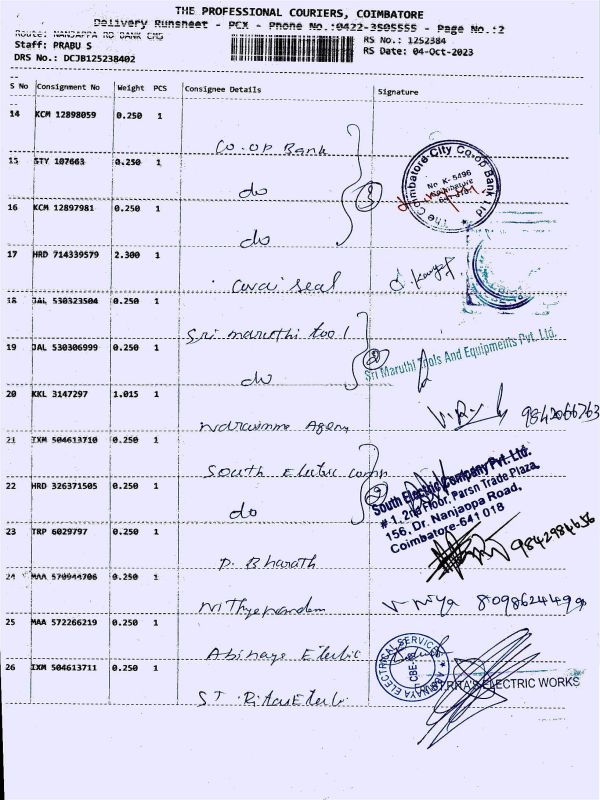 THE PROFESSIONAL COURIERS, COIMBATORE
Delivery Runsheet - PCX - Phone No.:0422-3505555 - Page No.:2
Route: NANJAPPA RD BANK CMG
RS No.: 1252384
Staff: PRABU S
RS Date: 04-Oct-2023
DRS No.: DCJB125238402
S No Consignment No Weight PCS Consignee Details Signature
14 KCM 12898059 0.250 1 Co-op Bank
15 STY 107663 0.250 1 do 3
The Coimbatore City Co-op Bank Ltd
No. K. 5496
Coimbatore
16 KCM 12897981 0.250 1 do
17 HRD 714339579 2.300 1 seal
18 JAL 530323504 0.250 1 Sri maruthi tool
19 JAL 530306999 0.250 1 do 2
Sri Maruthi Tools And Equipments Pvt. Ltd.
20 KKL 3147297 1.015 1 Agency 9842066763
21 IXM 504613710 0.250 1 South Electric comp
22 HRD 326371505 0.250 1 do 2
South Electric Company Pvt. Ltd.
# 1, 2nd Floor, Parsn Trade Plaza,
156, Dr. Nanjappa Road,
Coimbatore-641 018
23 TRP 6029797 0.250 1 D. Bharath 9842984656
24 MAA 570944706 0.250 1
25 MAA 572266219 0.250 1 Abinaya Electric
ABINAYA ELECTRICAL SERVICES
CBE-18
26 IXM 504613711 0.250 1 ST. Ritas Electri
ST.RITA'S ELECTRIC WORKS